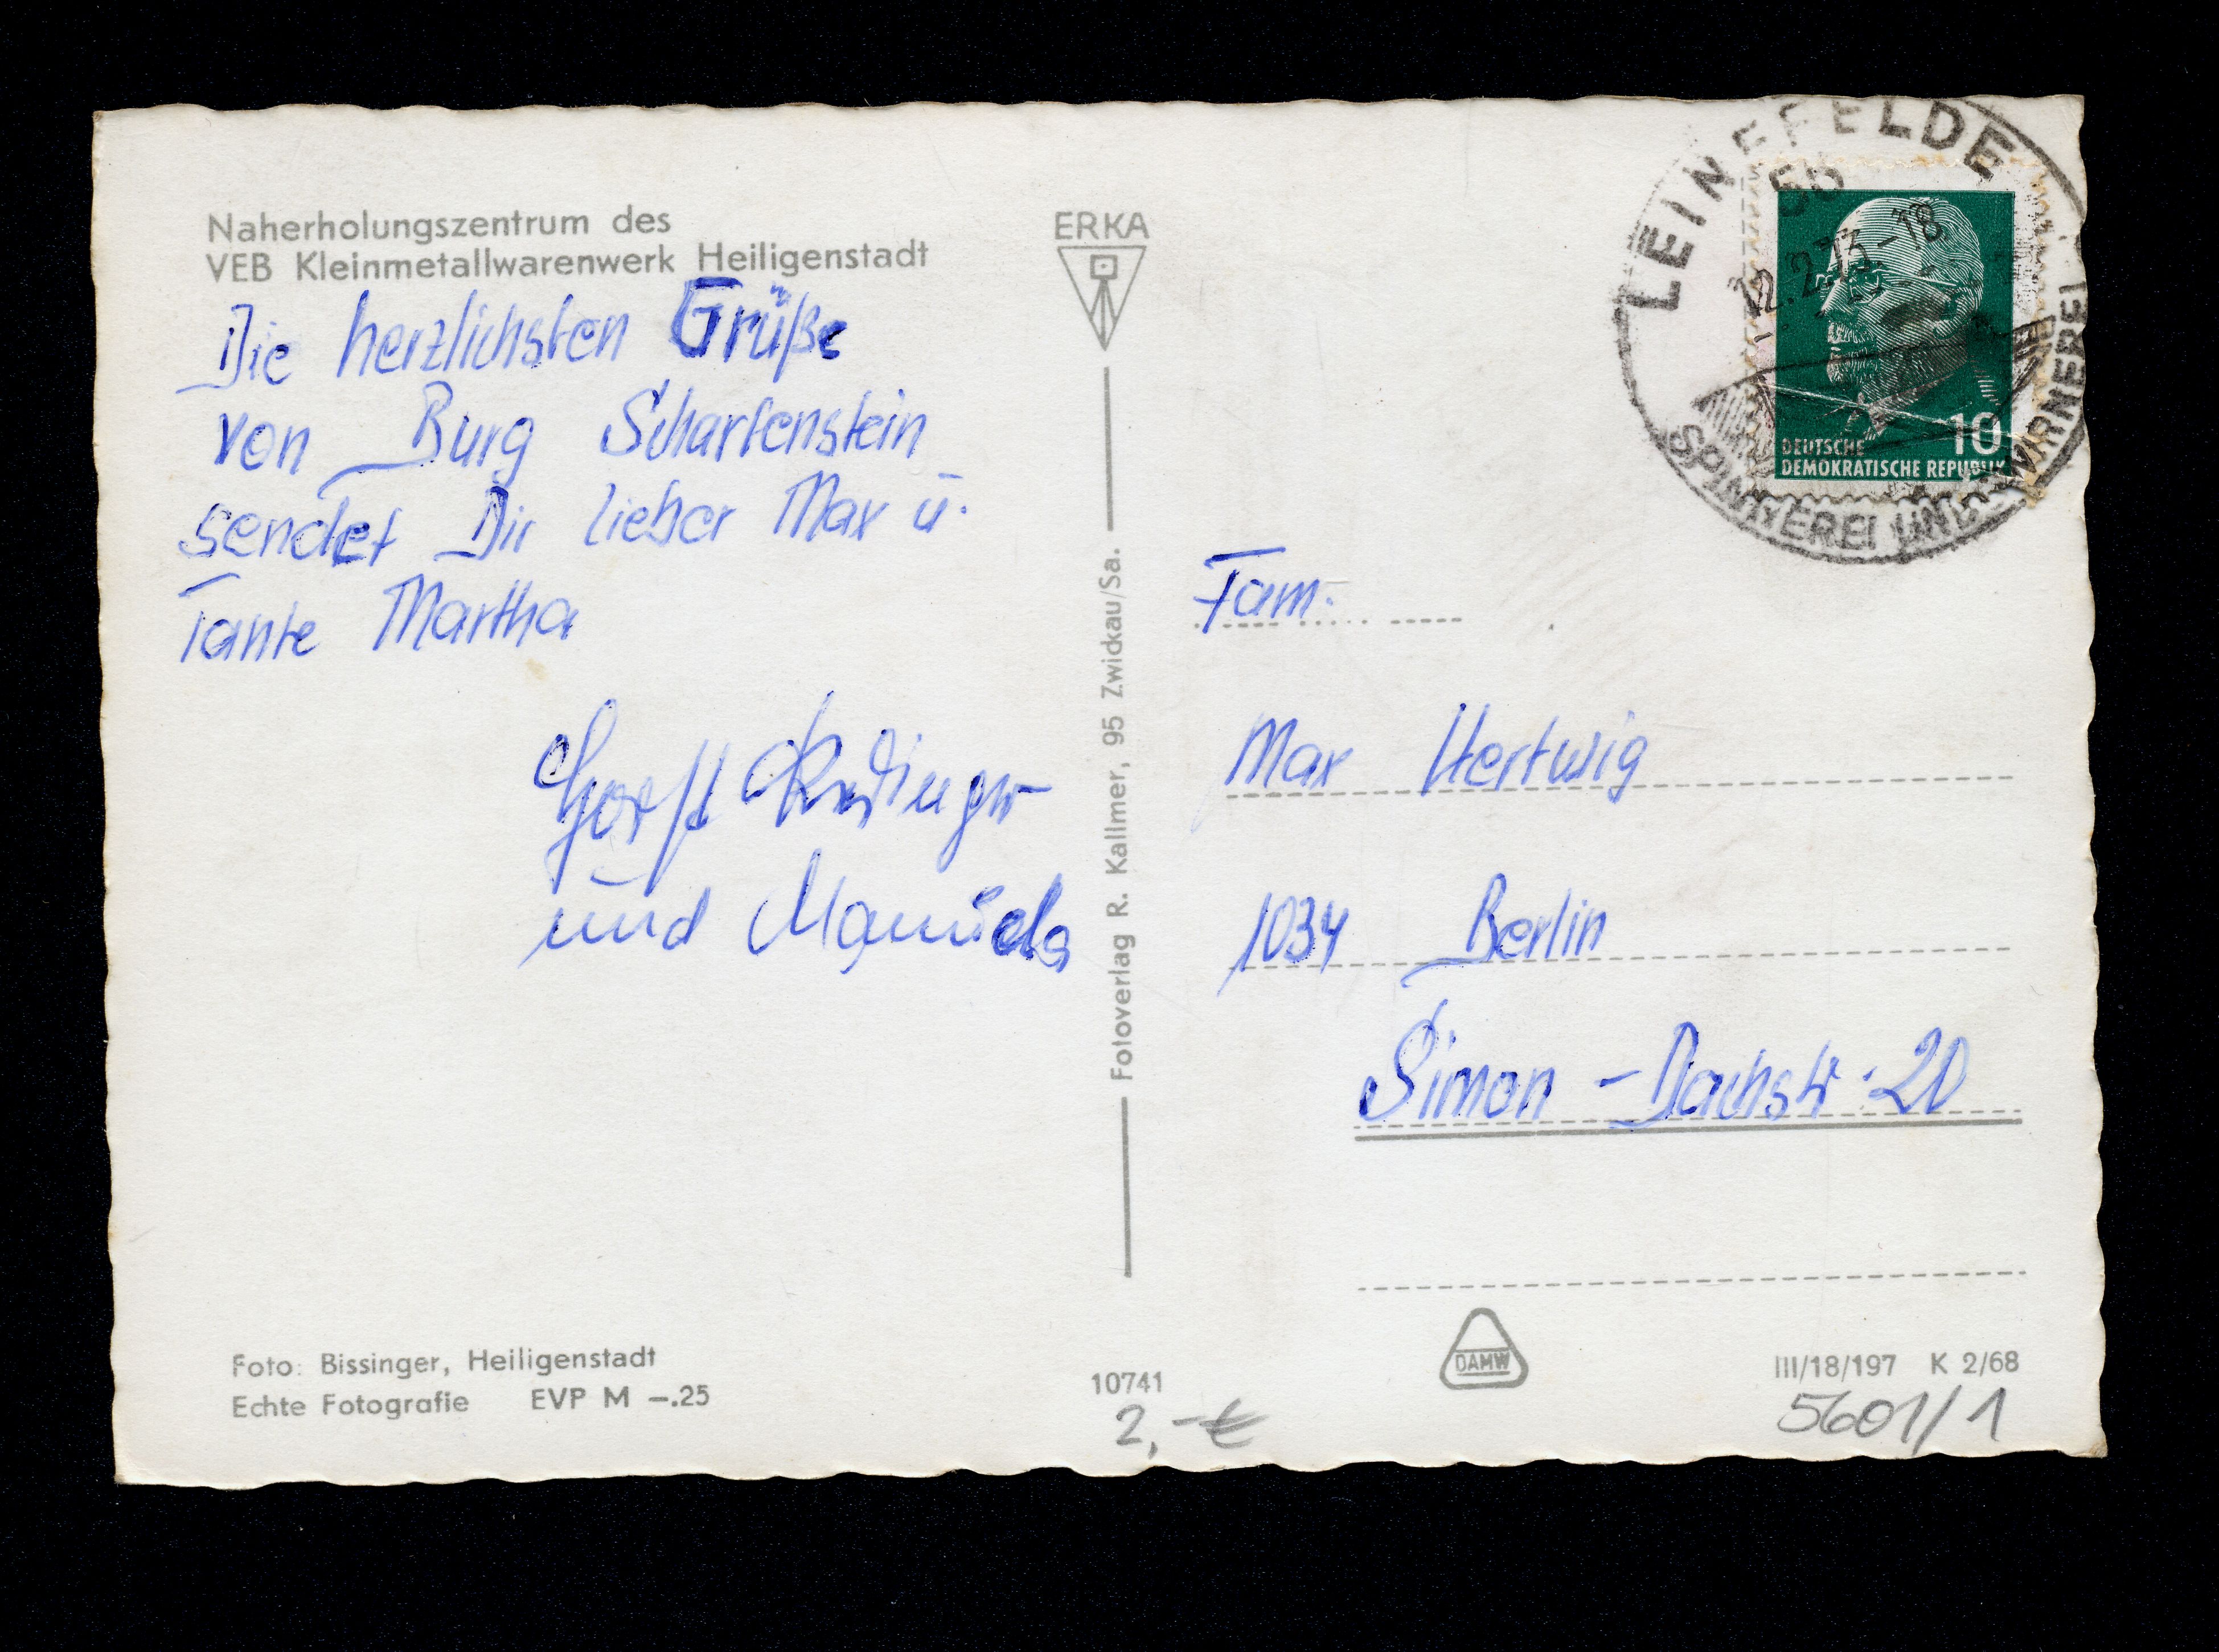 Naherholungszentrum des
VEB Kleinmetallwarenwerk Heiligenstadt
Die herzlichsten Grüße
von Burg Scharfenstein
sendet Dir lieber Max u.
Tante Martha
Horst
und Manuela
Foto: Bissinger, Heiligenstadt
Echte Fotografie EVP M –.25
ERKA
Fotoverlag R. Kallmer, 95 Zwickau/Sa.
10741
2,-€
LEINEFELDE
12.2.73.-18
SPINNEREI UND ZWIRNEREI
10
DEUTSCHE
DEMOKRATISCHE REPUBLIK
Fam.
Max Hertwig
1034 Berlin
Simon-Dachstr. 20
DAMW
III/18/197 K 2/68
5601/1